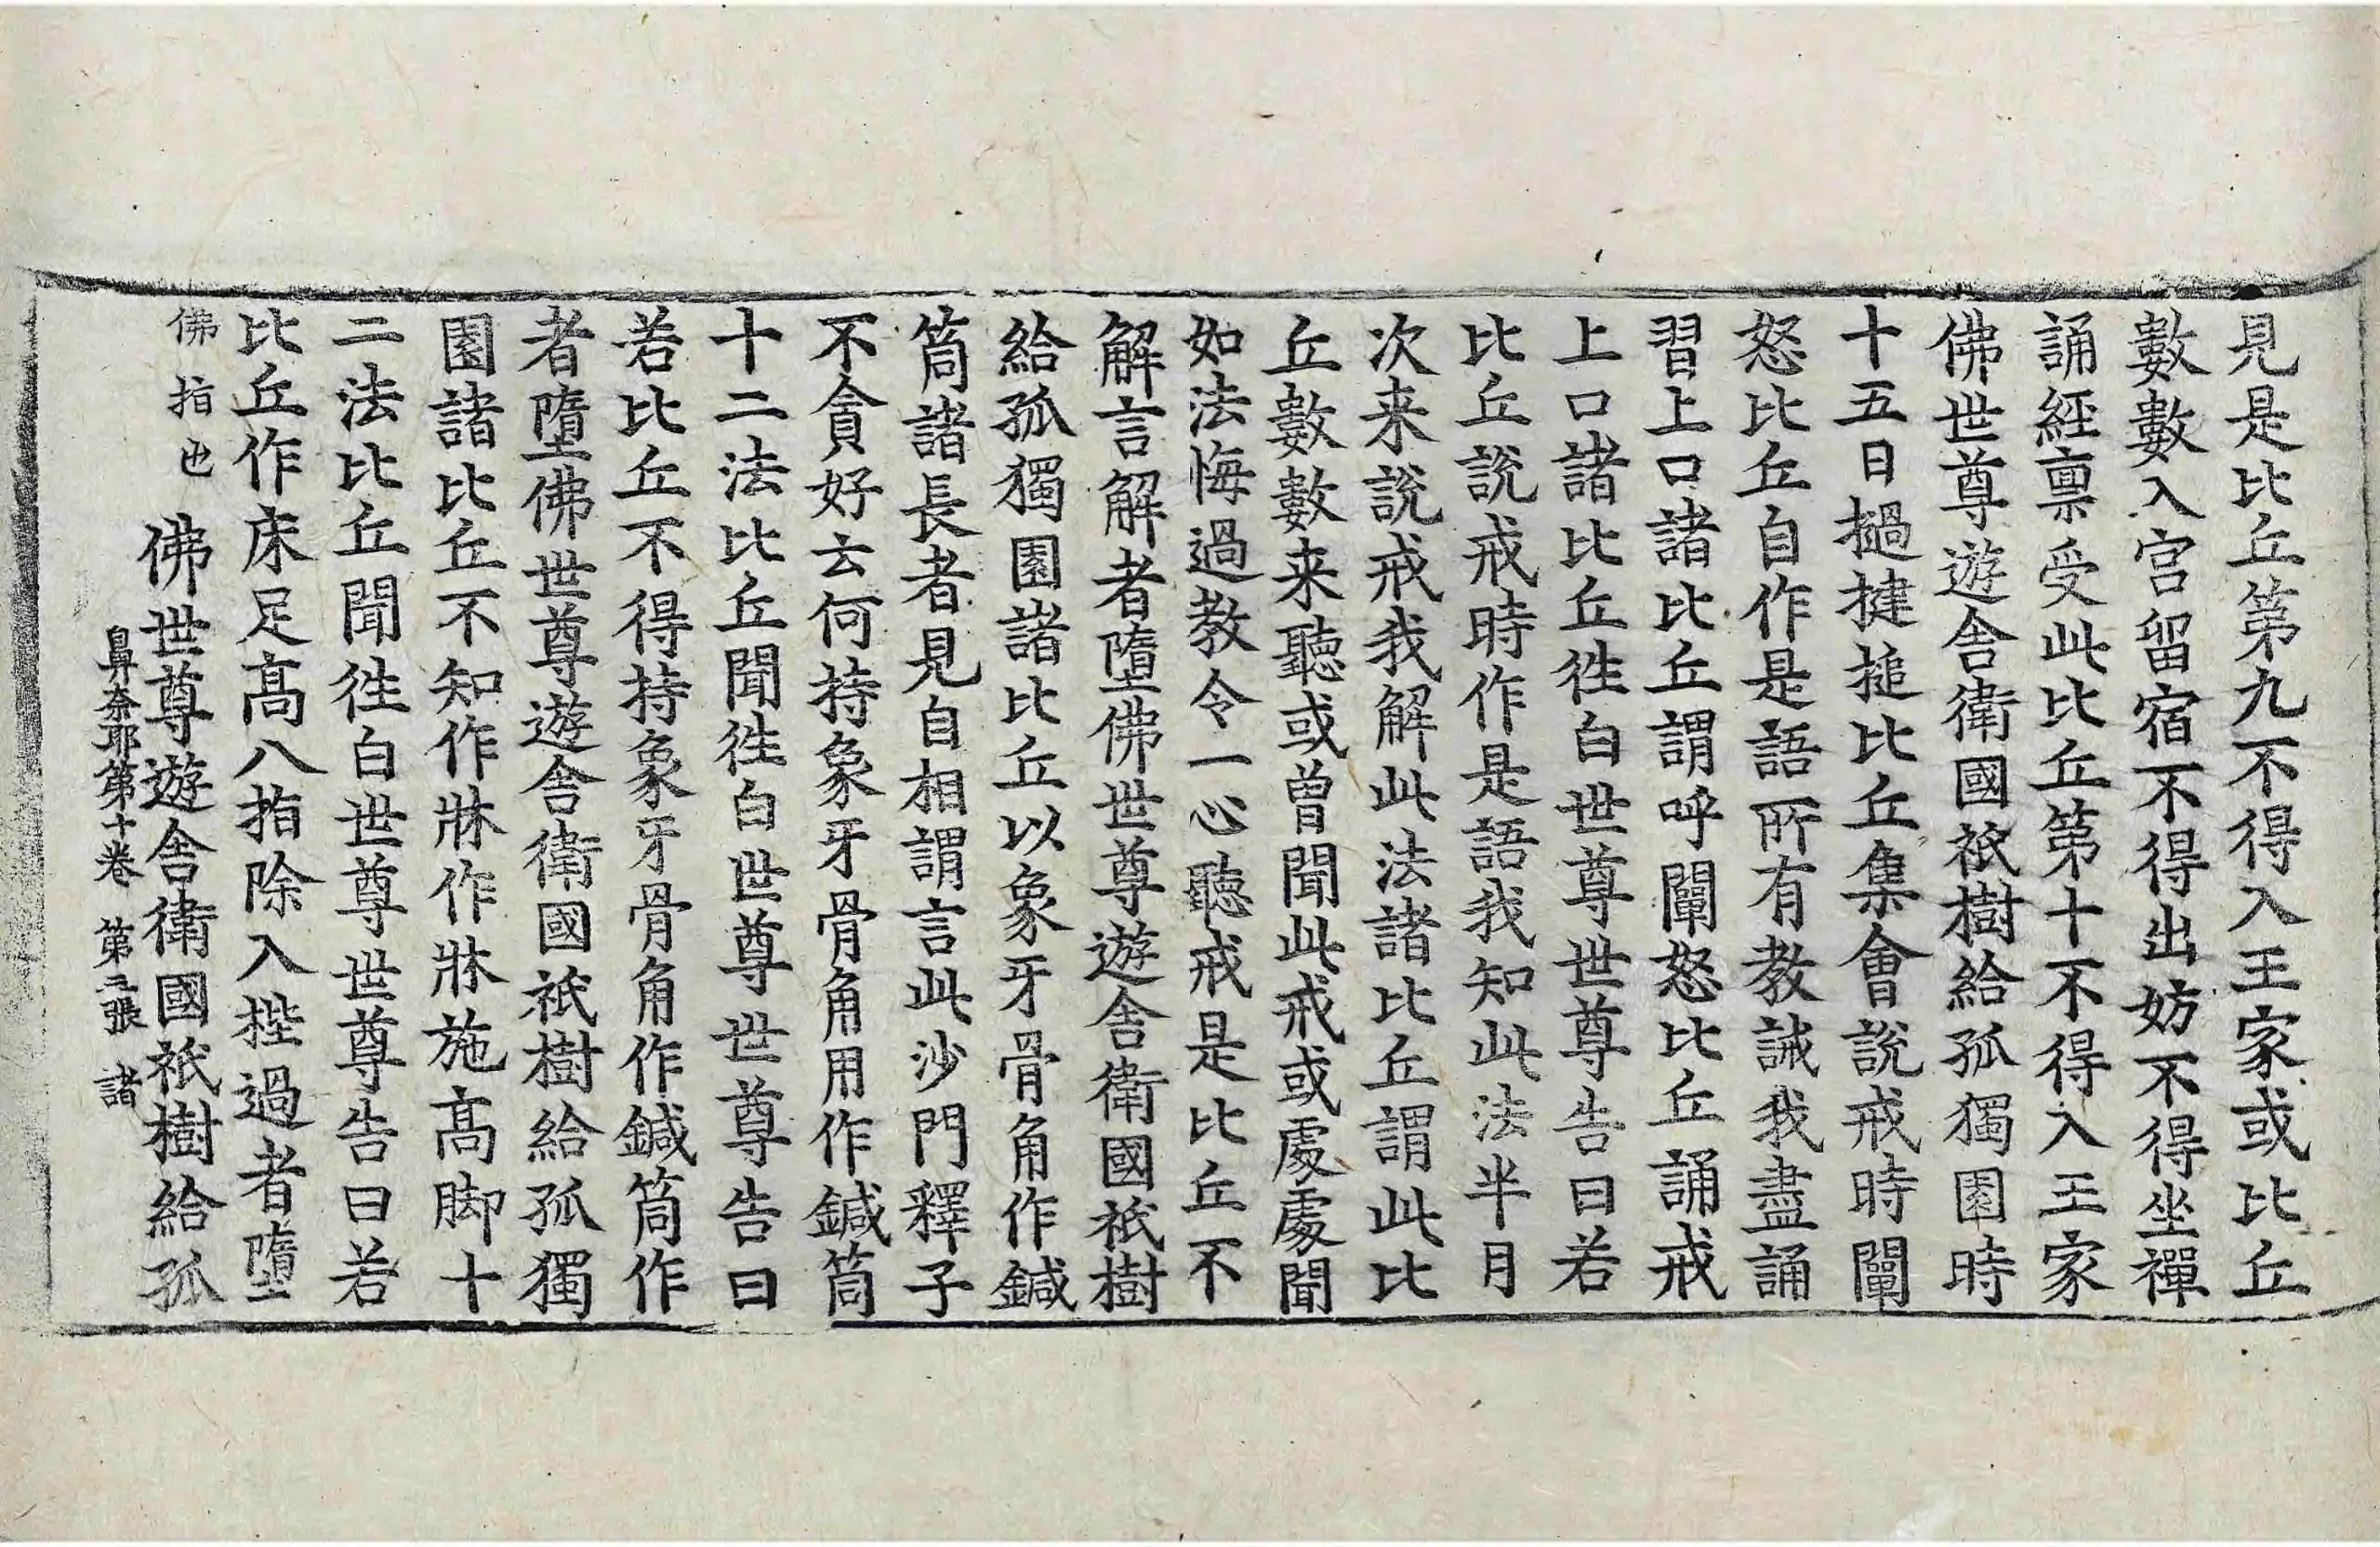 見是比丘第九不得入王家或比丘
數數入宮留宿不得出妨不得坐禪
誦經禀受此比丘第十不得入王家
佛世尊遊舎衛國祇樹給孤獨園時
十五日撾揵搥比丘集會說戒時闡
怒比丘自作是語所有教誡我盡誦
習上口諸比丘謂呼闡怒比丘誦戒
上口諸比丘徃白世尊世尊告曰若
比丘說戒時作是語我知此法半月
次来說戒我解此法諸比丘謂此比
丘數數来聽或曽聞此戒或處處聞
如法悔過教令一心聽戒是比丘不
解言解者墮佛世尊遊舎衛國祇樹
給孤獨園諸比丘以象牙骨角作鍼
筒諸長者見自相謂言此沙門釋子
不貪好云何持象牙骨角用作鍼筒
十二法比丘聞徃白世尊世尊告曰
若比丘不得持象牙骨角作鍼筒作
者墮佛世尊遊舎衛國祇樹給孤獨
園諸比丘不知作牀作牀施高脚十
二法比丘聞徃白世尊世尊告曰若
比丘作床足高八指除入梐過者墮
佛指也 佛世尊遊舎衛國祇樹給孤
鼻奈耶第十卷 第三張 諸